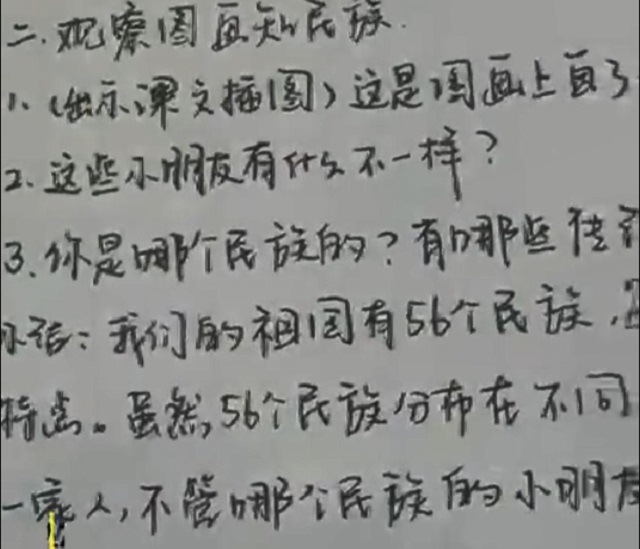 二.观察图画知民族.
1.(出示课文插图)这是图画上画了
2.这些小朋友有什么不一样?
3.你是哪个民族的?有哪些传
小结:我们的祖国有56个民族,
特点。虽然56个民族分布在不同
一家人,不管哪个民族的小朋友